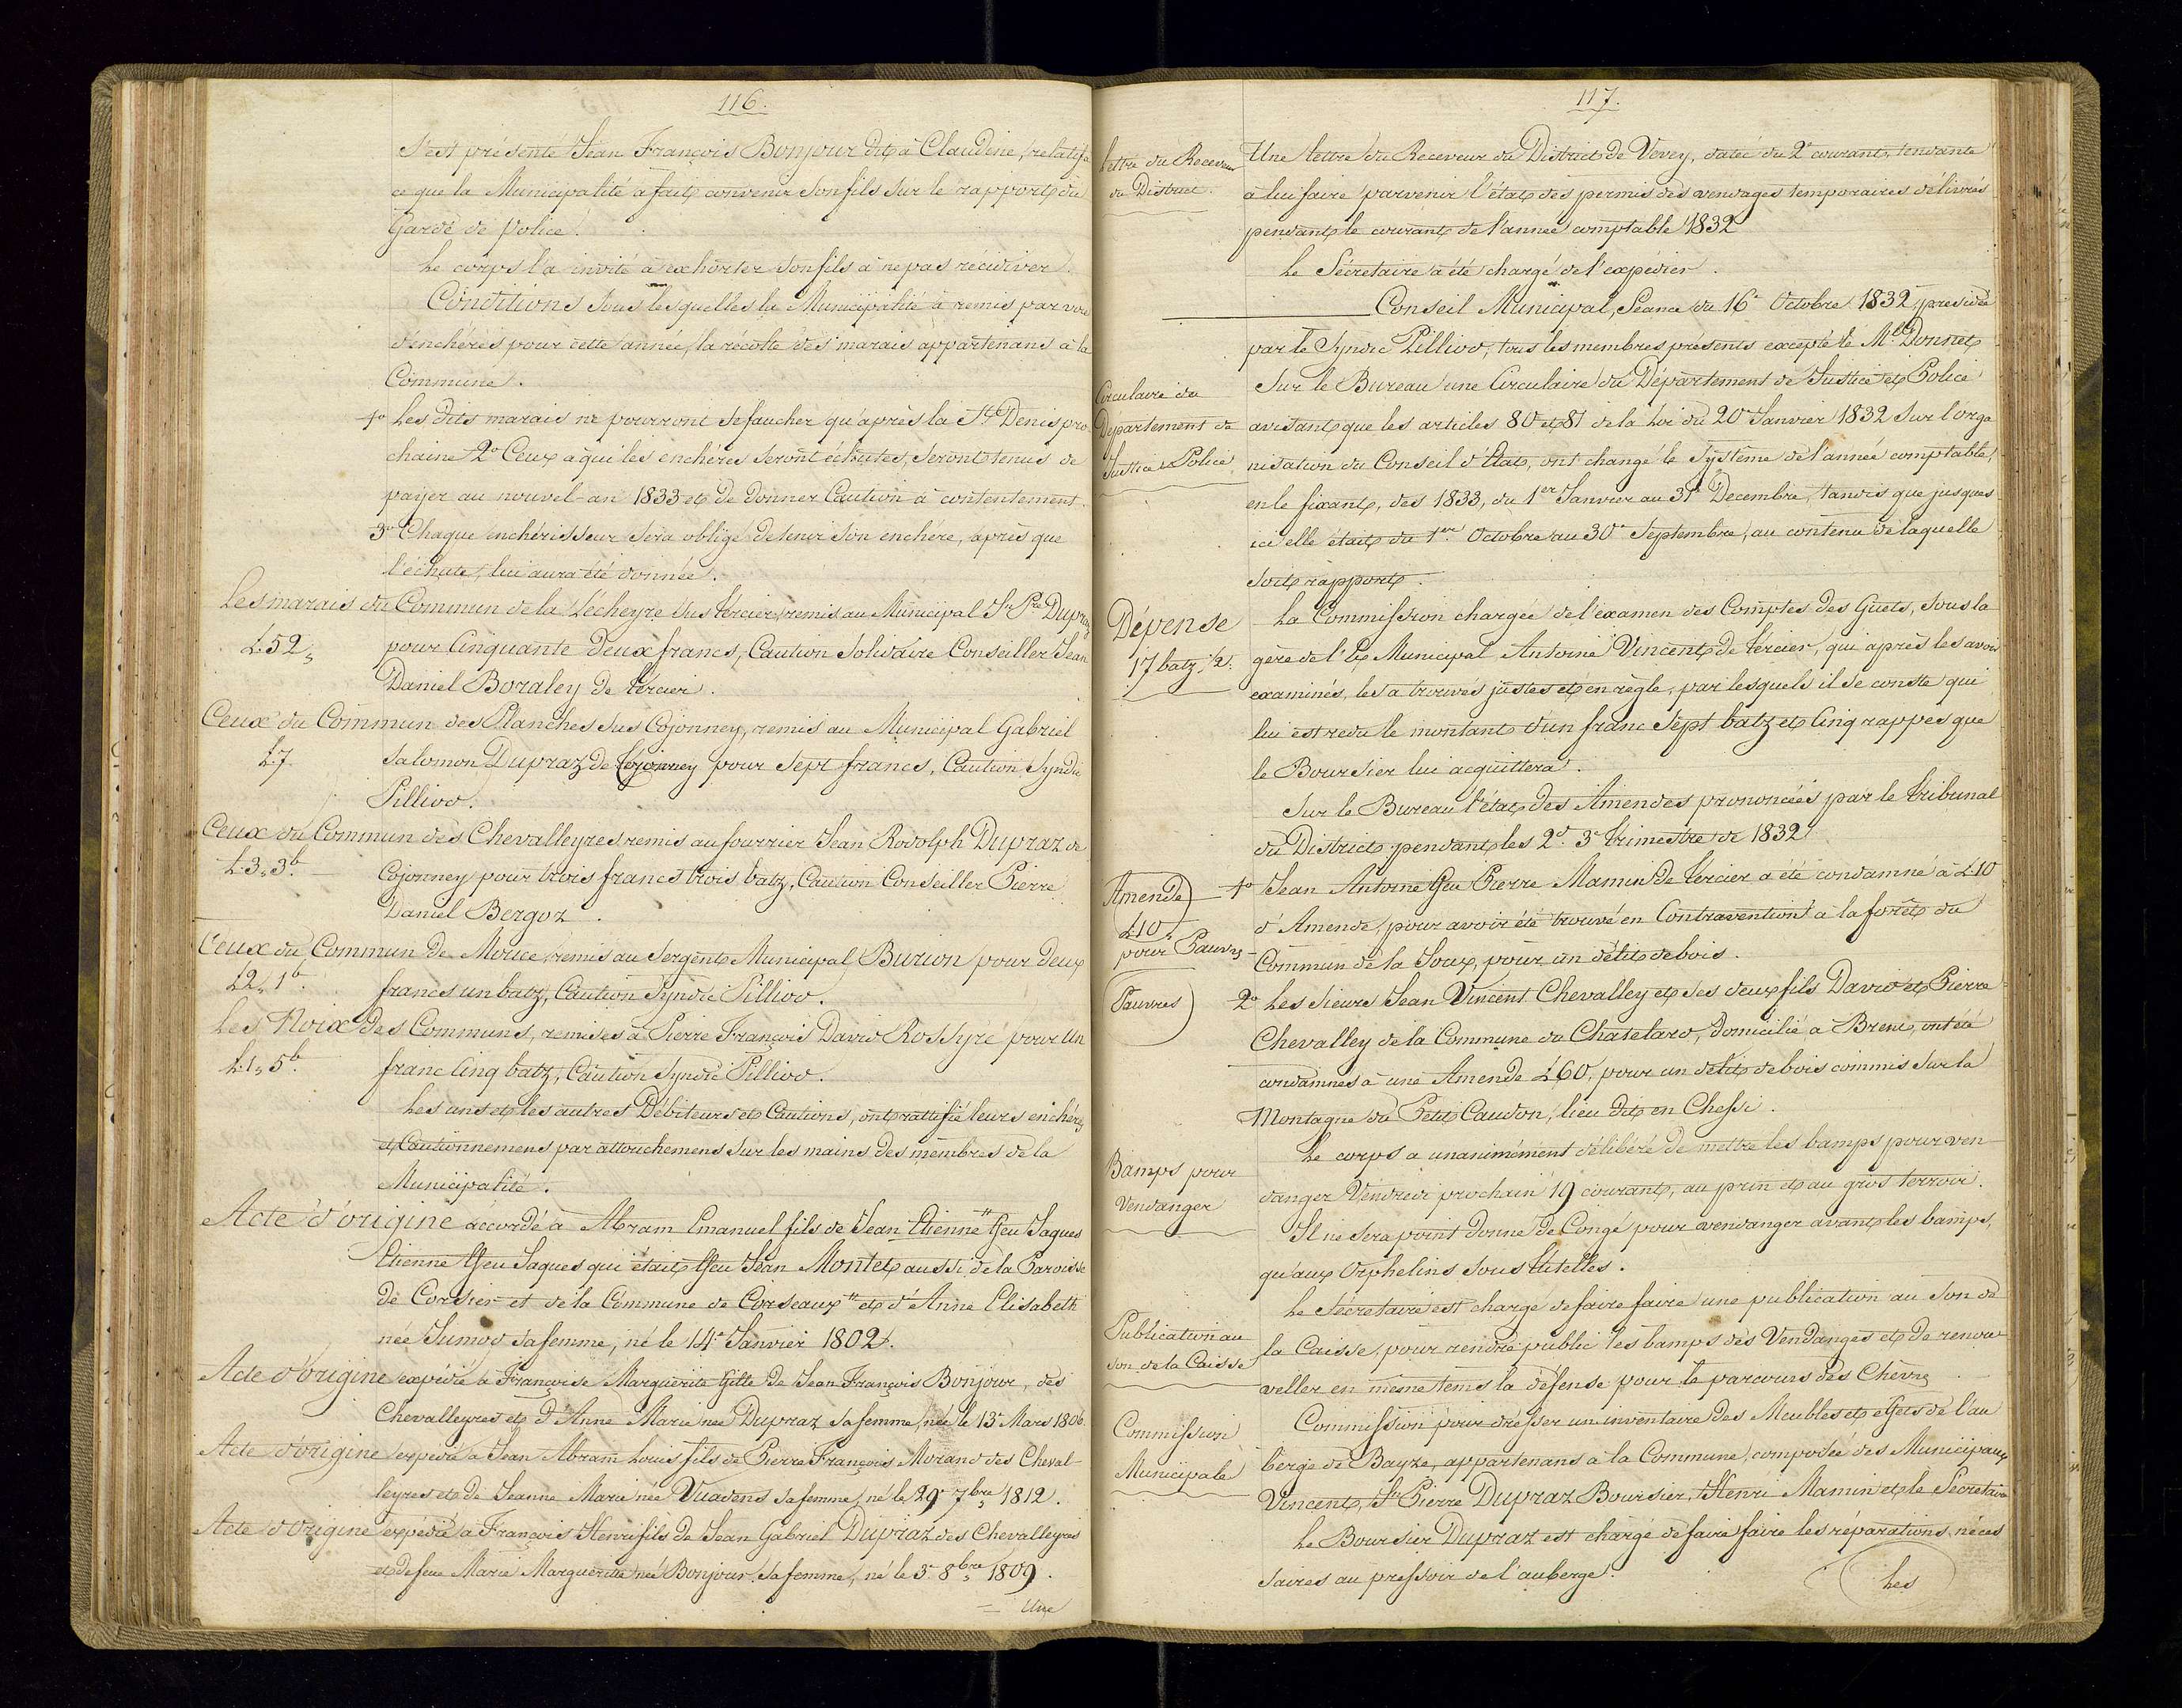 116.
s'est présenté Jean François Bonjour dit à Claudine, relatif à
ce que la Municipalité a fait convenir son fils sur le rapport du
Garde de police.
Le corps l'a invité à exhorter son fils à ne pas récidiver.
Conditions sous lesquelles la Municipalité a remis par voie
d'enchères pour cette année, la récolte des marais appartenans à la
Commune.
1o Les dits marais ne pourront se faucher qu'après la St. Denis pro-
chaine 2o Ceux à qui les enchères seront échutes, seront tenus de
payer au nouvel-an 1833 et de donner Caution à contentement.
3o Chaque enchérisseur sera obligé de tenir son enchère, après que
l'échute lui aura été donnée.
Les marais du Commun de la Lécheyre sus Tercier, remis au Municipal Jn Pre Dupraz
L.52,, pour Cinquante deux francs, Caution solidaire Conseiller Jean
Daniel Boraley de Tercier.
Ceux du Commun des Planches sus Cojonney, remis au Municipal Gabriel
L.7 Salomon Dupraz de Cojonney pour sept francs, Caution, Syndic
Pilliod.
Ceux du Commun des Chevalleyres remis au fourrier Jean Rodolph Dupraz de
L.3,,3b. Cojonney pour trois francs trois batz, Caution Conseiller Pierre
Daniel Bergoz.
Ceux du Commun de Mouce remis au Sergent Municipal Burion pour deux
L2,,1b. francs un batz, Caution Syndic Pilliod.
Les Noix des Communs, remises à Pierre François David Rossyre pour un
L.1,,5b. franc Cinq batz, Caution Syndic Pilliod.
Les uns et les autres Débiteurs et Cautions, ont rattifié leurs enchères
et Cautionnemens par attouchemens sur les mains des membres de la
Municipalité.
Acte d'origine accordé à Abram Emanuel fils de Jean Etienne "feu Jaques
Etienne feu Jaques qui était feu Jean Montet aussi de la Paroisse
de Corsier et de la Commune de Corseaux" et d'Anne Elisabeth
née Jumod sa femme, né le 14e Janvier 1802.
Acte d'origine expédié à Françoise Marguerite fille de Jean François Bonjour, des
Chevalleyres et d'Anne Marie née Dupraz sa femme, née le 13e Mars 1806.
Acte d'origine expédié à Jean Abram Louis fils de Pierre François Morand des Cheval-
leyres et de Jeanne Marie née Vuadens sa femme, né le 29e 7bre 1812.
Acte d'Origine expédié à François Henri fils de Jean Gabriel Dupraz des Chevalleyres
et de feue Marie Marguerite née Bonjour sa femme, né le 3e 8bre 1809.
Une
117.
Lettre du Receveur
du District.
Une lettre du Receveur du District de Vevey, datée du 2e courant, tendante
à lui faire parvenir l'état des permis des vendages temporaires délivrés
pendant le courant de l'année comptable 1832
Le Sécretaire a été chargé de l'expédier.
Conseil Municipal, Séance du 16e Octobre 1832, présidée
par le Syndic Pilliod, tous les membres présents excepté le Ml. Donnet
Circulaire du
Département de
Justice & Police
Sur le Bureau une Circulaire du Département de Justice et Police
avisant que les articles 80 et 81 de la Loi du 20e Janvier 1832 sur l'orga
nisation du Conseil d'Etat, ont changé le Système de l'année comptable,
en le fixant, dès 1833, du 1er Janvier au 31e Decembre, tandis que jusques
ici elle était du 1er. Octobre au 30e Septembre, au contenu de laquelle
soit rapport.
Dépense
17 batz. 1/2.
La Commission chargée de l'examen des Comptes des Guets, sous la
gère de l'Ex Municipal Antoine Vincent de Tercier, qui après les avoir
examinés, les a trouvés justes et en règle, par lesquels il se conste qui
lui est redu le montant d'un franc Sept batz et Cinq rappes que
le Boursier lui acquittera.
Sur le Bureau l'état des Amendes prononcées par le Tribunal
du District pendant les 2e. 3e trimestre de 1832
Amende
L10.
pour Pauvres
1o Jean Antoine feu Pierre Mamin de Tercier a été condamné à L.10
d'Amende, pour avoir été trouvé en Contravention à la forêt du
Commun de la Soux, pour un délit de bois.
Pauvres
2o Les sieurs Jean Vincent Chevalley et ses deux fils David et Pierre
Chevalley de la Commune du Chatelard, domicilié à Brent, ont été
condamnés à une Amende L60, pour un delit de bois commis sur la
Montagne du Petit Caudon, lieu dit en Chessi.
Bamps pour
Vendanger
Le corps a unanimément délibéré de mettre les bamps pour ven-
danger Vendredi prochain 19 courant, au prin et au gros terroir.
Il ne sera point donné de Congé pour vendanger avant les bamps,
qu'aux Orphelins sous tutelles.
Publication au
son de la Caisse
Le Sécretaire est chargé de faire faire une publication au son de
la Caisse, pour rendre public les bamps des Vendanges et de renou-
veller en meme tems la défense pour le parcours des Chèvres
Commission
Municipale
Commission pour dresser un inventaire des Meubles et effets de l'au
berge de Bayze, appartenans à la Commune, composée des Municipaux
Vincent, Jn Pierre Dupraz Boursier, Henri Mamin et le Sécretaire
Le Boursier Dupraz est chargé de faire faire les réparations néces
saires au pressoir de l'auberge.
Les